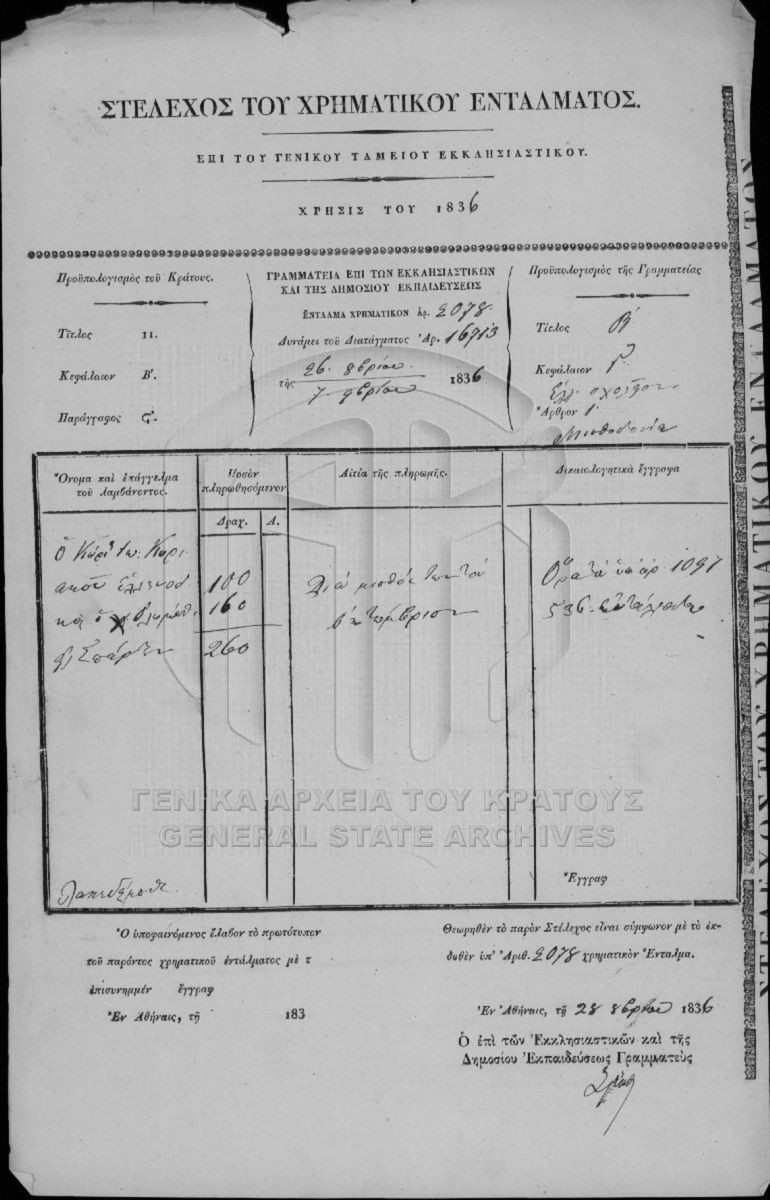 ΣΤΕΛΕΧΟΣ ΤΟΥ ΧΡΗΜΑΤΙΚΟΥ ΕΝΤΑΛΜΑΤΟΣ.
ΕΠΙ ΤΟΥ ΓΕΝΙΚΟΥ ΤΑΜΕΙΟΥ ΕΚΚΛΗΣΙΑΣΤΙΚΟΥ.
ΧΡΗΣΙΣ ΤΟΥ 1836
Προϋπολογισμὸς τοῦ Κράτους.
Τίτλος II.
Κεφάλαιον Β'.
Παράγραφος ς'.
ΓΡΑΜΜΑΤΕΙΑ ΕΠΙ ΤΩΝ ΕΚΚΛΗΣΙΑΣΤΙΚΩΝ
ΚΑΙ ΤΗΣ ΔΗΜΟΣΙΟΥ ΕΚΠΑΙΔΕΥΣΕΩΣ
ΕΝΤΑΛΜΑ ΧΡΗΜΑΤΙΚΟΝ Ἀρ. 2078.
Δυνάμει τοῦ Διατάγματος Ἀρ. 16713
26. 8βρίου
τῆς 1836
7 9βρίου
Προϋπολογισμὸς τῆς Γραμματείας
Τίτλος Β'
Κεφάλαιον Γ'
Ἑλλ. σχολεῖον
Ἄρθρον 1.
Μισθοδοσία
Ὄνομα καὶ ἐπάγγελμα
τοῦ λαμβάνοντος.
Ποσὸν
πληρωθησόμενον
Αἰτία τῆς πληρωμῆς.
Δικαιολογητικὰ ἔγγραφα
Δραχ. Λ.
100
καὶ ὁ 160
Σπάρτην 260
Διὰ μισθὸν
1097
536.
Ἔγγραφ
Ὁ ὑποφαινόμενος ἔλαβον τὸ πρωτότυπον
τοῦ παρόντος χρηματικοῦ ἐντάλματος μὲ τ
ἐπισυνημμέν ἔγγραφ
Ἐν Ἀθήναις, τῇ 183
Θεωρηθὲν τὸ παρὸν Στέλεχος εἶναι σύμφωνον μὲ τὸ ἐκ-
δοθὲν ὑπ' Ἀριθ. 2078 χρηματικὸν Ἔνταλμα.
Ἐν Ἀθήναις, τῇ 28 8βρίου 1836
Ὁ ἐπὶ τῶν Ἐκκλησιαστικῶν καὶ τῆς
Δημοσίου Ἐκπαιδεύσεως Γραμματεὺς
ΓΕΝΙΚΑ ΑΡΧΕΙΑ ΤΟΥ ΚΡΑΤΟΥΣ
GENERAL STATE ARCHIVES
ΣΤΕΛΕΧΟΣ ΤΟΥ ΧΡΗΜΑΤΙΚΟΥ ΕΝΤΑΛΜΑΤΩΝ